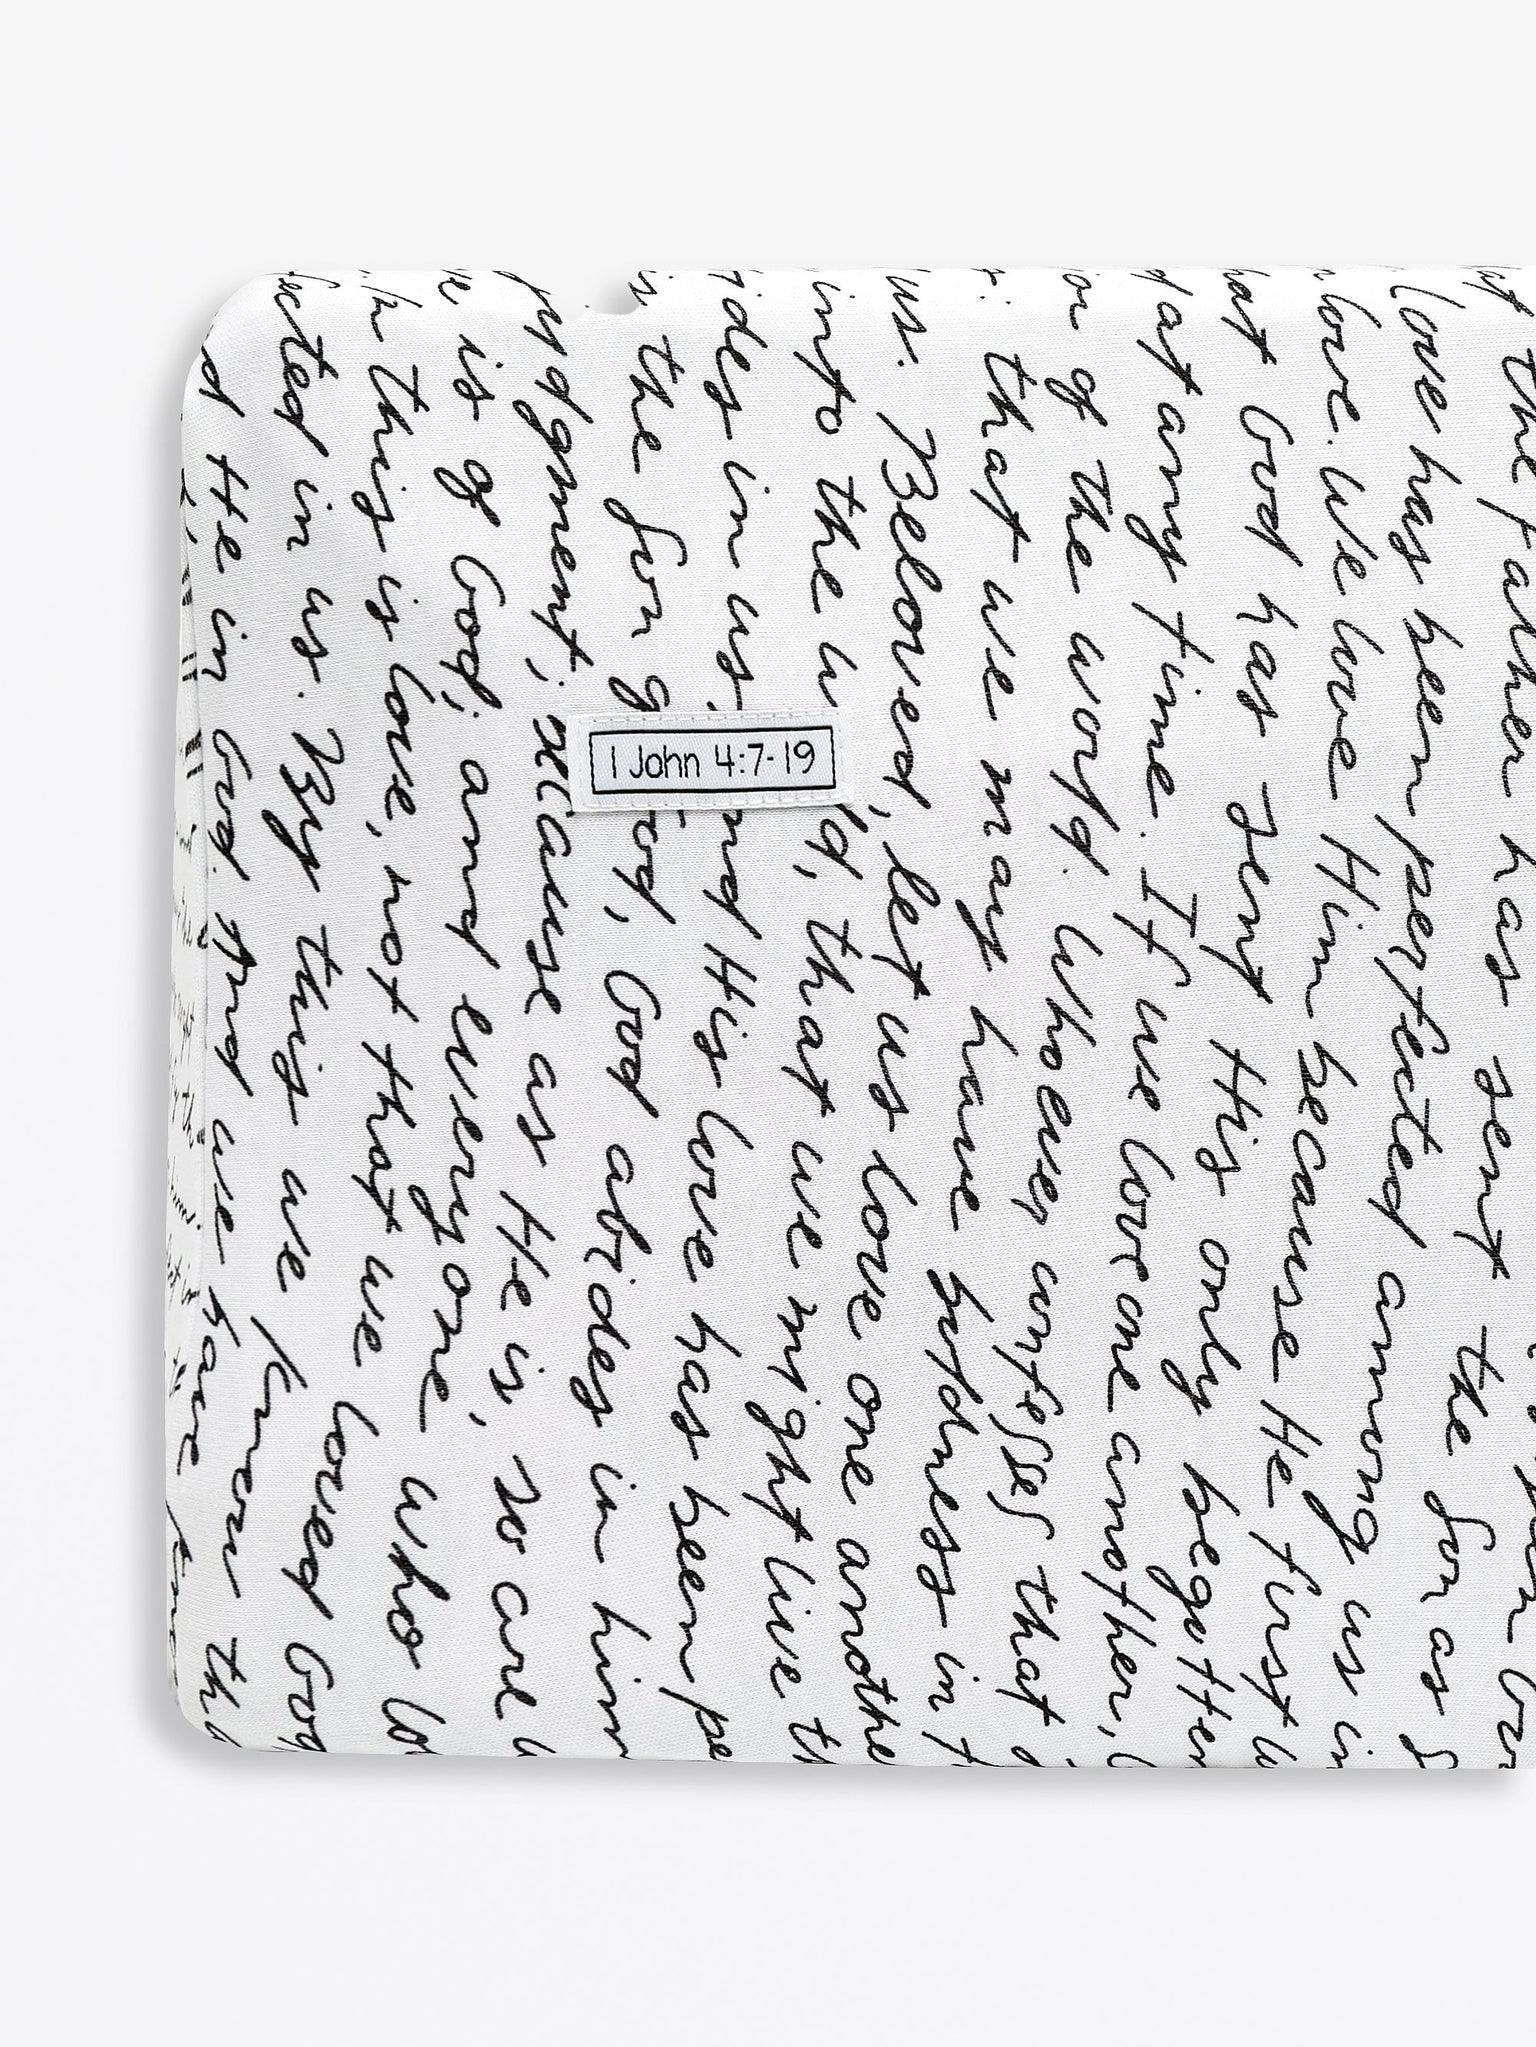 at the Father has sent the Son as S
love has been perfected among us in
n love. We love Him because He first w
hat God has sent His only begotten
at any time. If we love one another, G
ior of the world. Whoever confesses that J
: that we may have boldness in t
us. Beloved, let us love one anothe
into the w ld, that we might live th
ides in us, nd His love has been pe
is the Son g od, God abides in him
judgment; because as He is, so are w
e is of God; and everyone who lo
In this is love, not that we loved God
ected in us. By this we know th
d He in God. And we have know
1 John 4:7-19